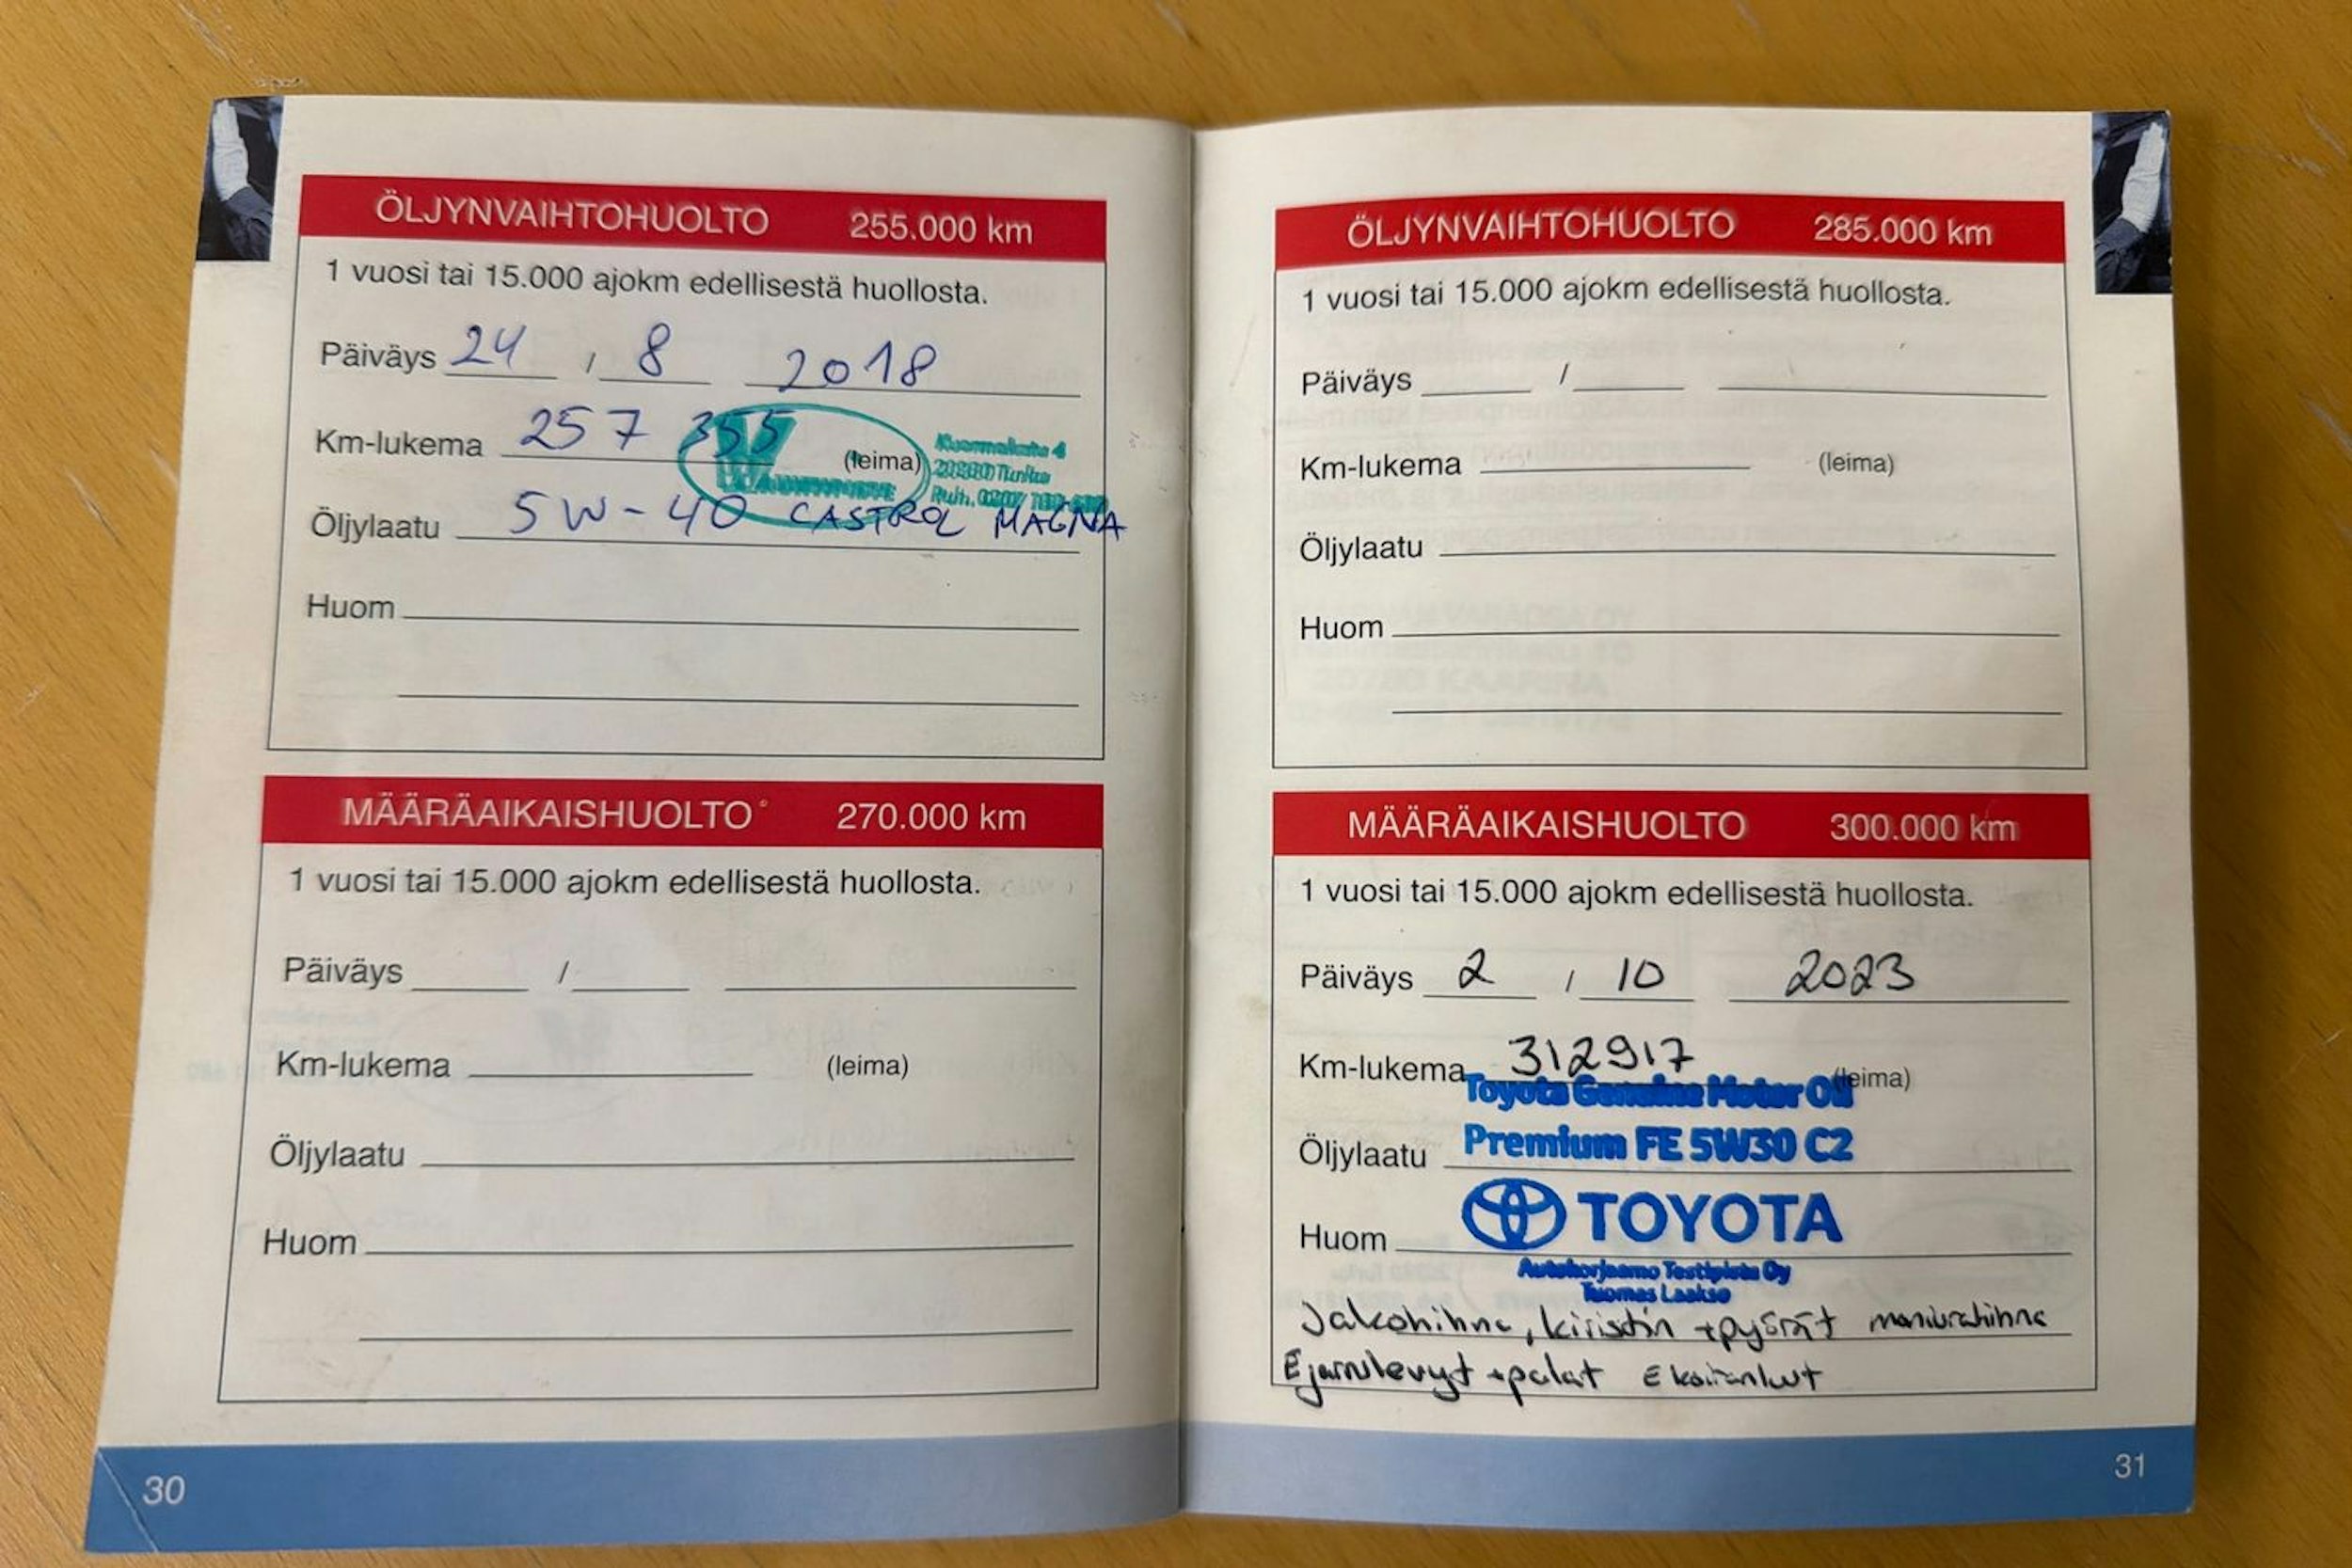 ÖLJYNVAIHTOHUOLTO 255.000 km
1 vuosi tai 15.000 ajokm edellisestä huollosta.
Päiväys 24 / 8 2018
Km-lukema 257 355 (leima)
Kuormakatu 4
20380 Turku
Puh. 0207
Öljylaatu 5W-40 CASTROL MAGNA
Huom
MÄÄRÄAIKAISHUOLTO 270.000 km
1 vuosi tai 15.000 ajokm edellisestä huollosta.
Päiväys /
Km-lukema (leima)
Öljylaatu
Huom
30
ÖLJYNVAIHTOHUOLTO 285.000 km
1 vuosi tai 15.000 ajokm edellisestä huollosta.
Päiväys /
Km-lukema (leima)
Öljylaatu
Huom
MÄÄRÄAIKAISHUOLTO 300.000 km
1 vuosi tai 15.000 ajokm edellisestä huollosta.
Päiväys 2 / 10 2023
Km-lukema 312917 (leima)
Toyota Genuine Motor Oil
Öljylaatu Premium FE 5W30 C2
Huom TOYOTA
Autokorjaamo Testipiste Oy
Tuomas Laakso
Jakohihna, kiristin +pyörät moniurahihna
E jarrulevyt +palat E koiranluut
31